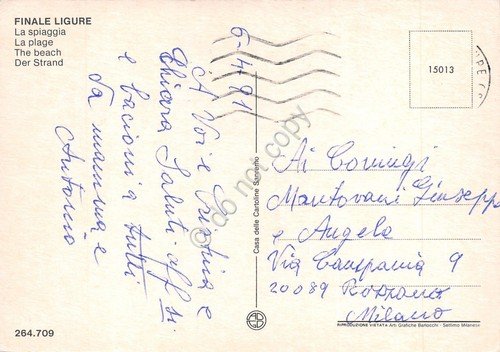 FINALE LIGURE
La spiaggia
La plage
The beach
Der Strand
6-4-91
A Voi e Cristina e
Chiara Saluti aff.si
e bacioni a tutti
La mamma e
Antonio
15013
Ai Coniugi
Mantovani Giuseppe
e Angela
Via Campania 9
20089 Rozzano
Milano
Casa delle Cartoline Sanremo
do not copy
264.709
RIPRODUZIONE VIETATA - Arti Grafiche Barlocchi - Settimo Milanese